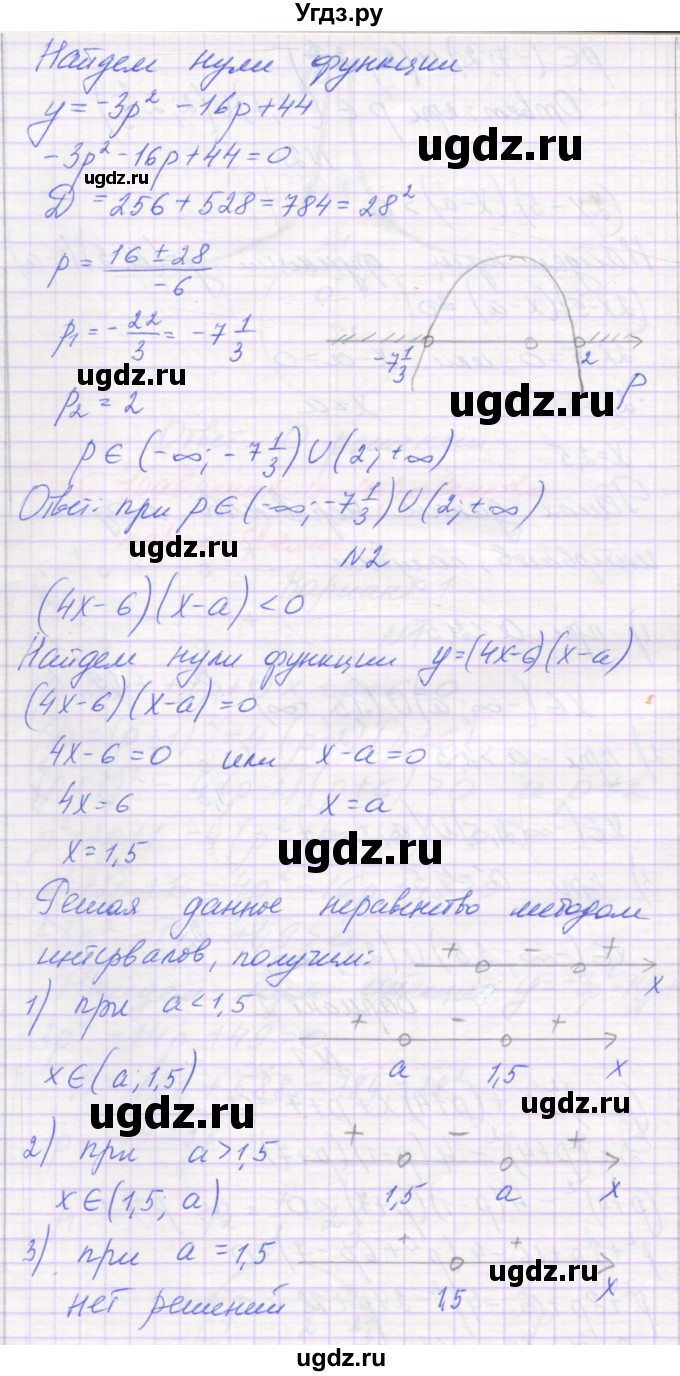 Угдз.ру
Найдем нули функции
y = -3p² - 16p + 44
-3p² - 16p + 44 = 0
ugdz.ru
ugdz.ru
D = 256 + 528 = 784 = 28²
p = (16 ± 28)/(-6)
p₁ = -22/3 = -7 1/3
-7 1/3 2
p
ugdz.ru
ugdz.ru
p₂ = 2
p ∈ (-∞; -7 1/3) ∪ (2; +∞)
Ответ: при p ∈ (-∞; -7 1/3) ∪ (2; +∞)
ugdz.ru
N2
(4x-6)(x-a) < 0
Найдем нули функции y=(4x-6)(x-a)
(4x-6)(x-a) = 0
4x-6=0 или x-a=0
4x=6 x=a
x=1,5
ugdz.ru
Решая данное неравенство методом
интервалов, получим: + - + x
1) при a<1,5
+ - +
x∈(a; 1,5) a 1,5 x
ugdz.ru
ugdz.ru
2) при a>1,5 + - +
x∈(1,5; a) 1,5 a x
3) при a=1,5 + +
ugdz.ru
нет решений 1,5 x
ugdz.ru